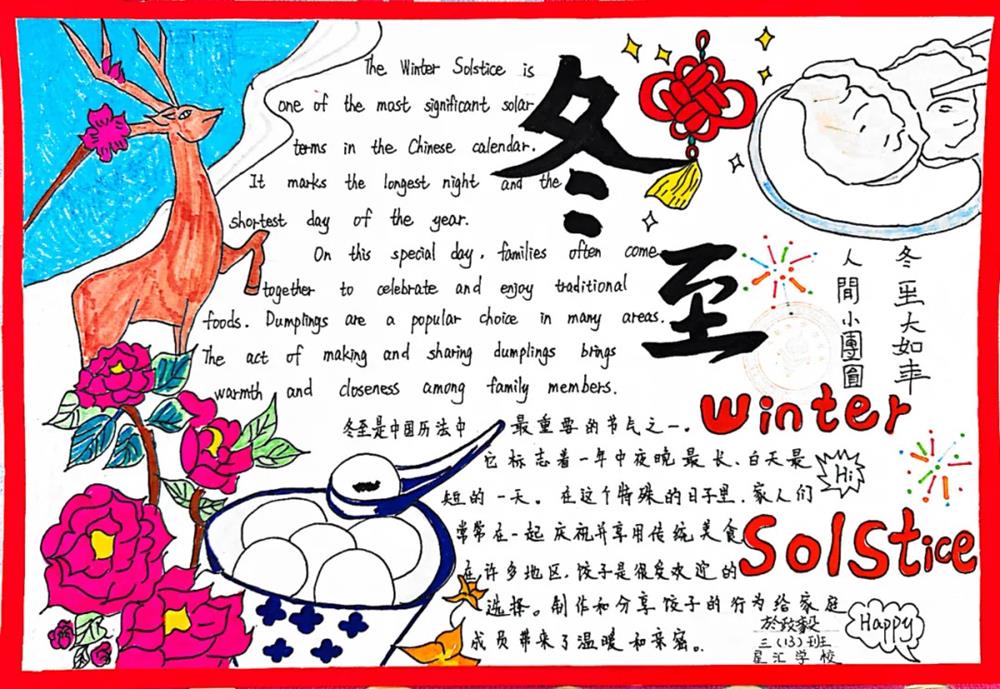 The Winter Solstice is
one of the most significant solar
terms in the Chinese calendar.
It marks the longest night and the
shortest day of the year.
On this special day, families often come
together to celebrate and enjoy traditional
foods. Dumplings are a popular choice in many areas.
The act of making and sharing dumplings brings
warmth and closeness among family members.
冬至
冬至大如年
人間小團圓
Winter
Solstice
Hi
冬至是中国历法中最重要的节气之一。
它标志着一年中夜晚最长、白天最
短的一天。在这个特殊的日子里,家人们
常常在一起庆祝并享用传统美食
在许多地区,饺子是很受欢迎的
选择。制作和分享饺子的行为给家庭
成员带来了温暖和亲密。
Happy
於政毅
三(13)班
星汇学校